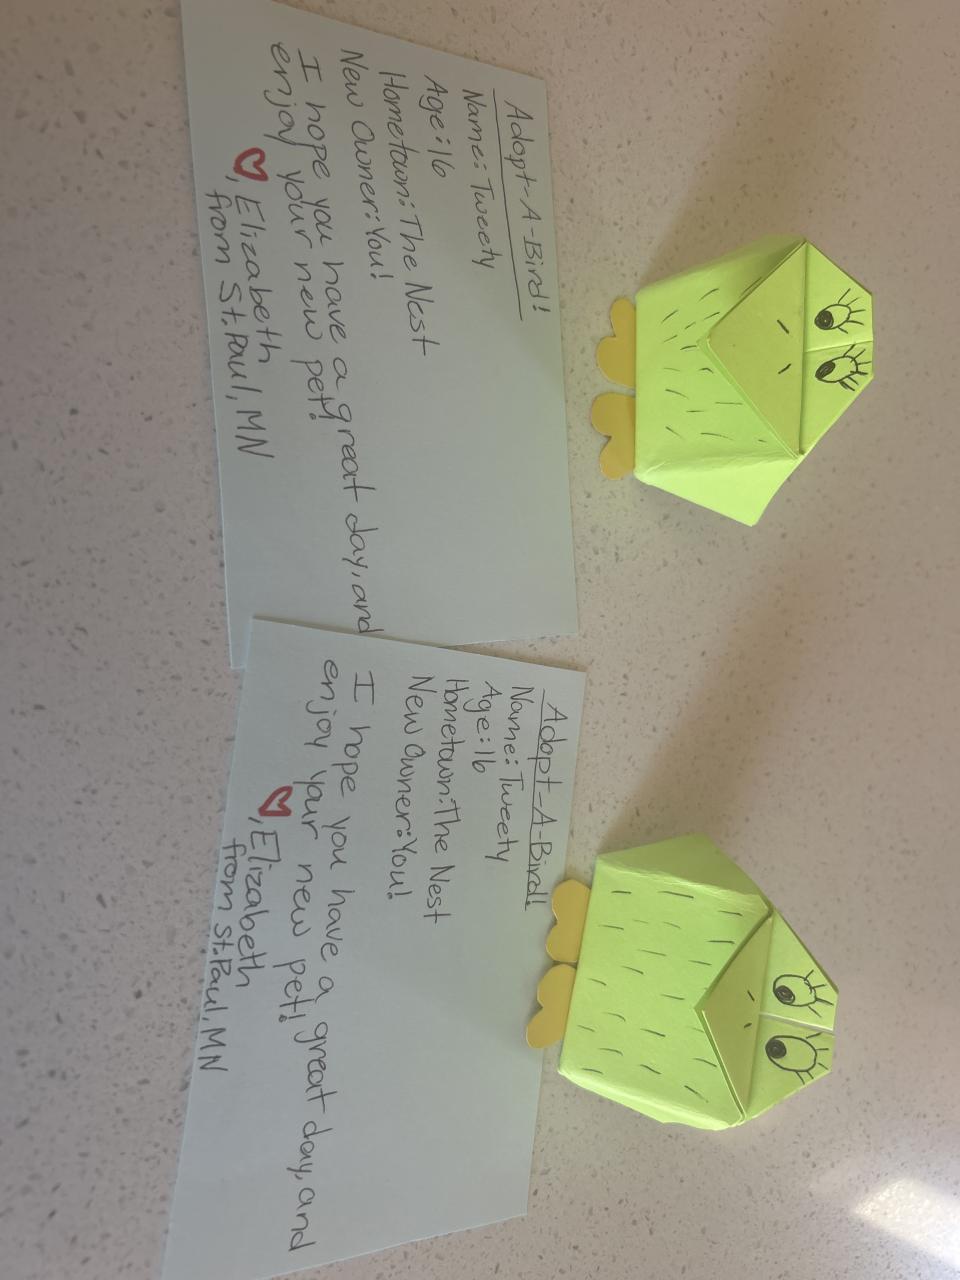 Adopt-A-Bird!
Name: Tweety
Age: 16
Hometown: The Nest
New Owner: You!
I hope you have a great day, and
enjoy your new pet!
♥, Elizabeth
from St. Paul, MN
Adopt-A-Bird!
Name: Tweety
Age: 16
Hometown: The Nest
New Owner: You!
I hope you have a great day, and
enjoy your new pet!
♥, Elizabeth
from St. Paul, MN